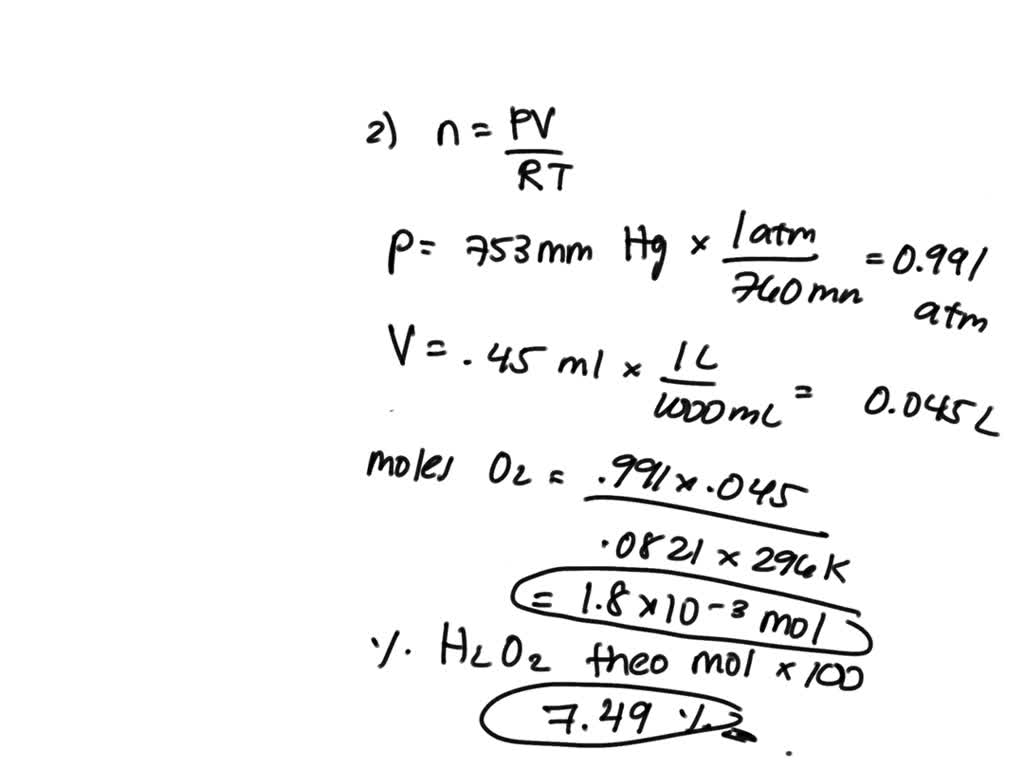 2) n = PV / RT
P = 753 mm Hg × 1 atm / 760 mm = 0.991 atm
V = .45 ml × 1L / 1000 mL = 0.045 L
moles O2 = .991 × .045 / .0821 × 296 K
= 1.8 × 10-3 mol
% H2O2 theo mol × 100
7.49 %